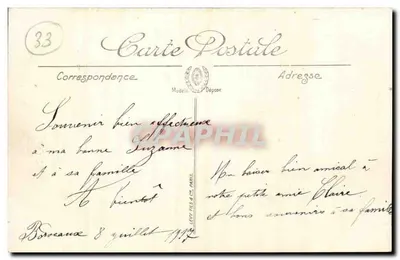 33
Carte Postale
Correspondence
Adresse
Modèle Déposé
Souvenir bien affectueux
à ma bonne Suzanne
et à sa famille
A bientôt
Bordeaux 8 juillet 1917
Un baiser bien amical à
notre petite amie Claire
et bons souvenirs à sa famille
LEVY FILS & Cie, PARIS
CPAPHIL